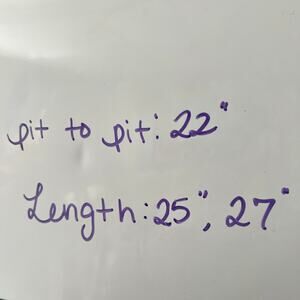 pit to pit: 22"
Length: 25", 27"